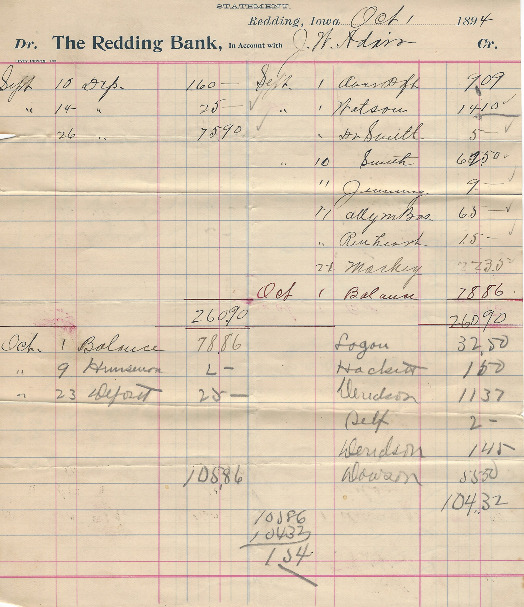 STATEMENT.
Redding, Iowa Oct 1 1894
Dr. The Redding Bank, In Account with J. W. Adair Cr.
Sept 10 Dep. 160— Sept 1 Dft 9,09
" 14 " 25— " 1 Watson 1410
" 26 " 7590 " Dr Smith 5—
" 10 Smith 6250
" 9—
" 11 Bros 65—
" 15—
21 Mackey 2235
Oct 1 Balance 7886
26090 26090
Oct. 1 Balance 7886 Logan 32,50
" 9 2— Hackett 150
" 23 Deposit 25— 1137
Self 2—
145
10586 Dawson 5550
104.32
10586
10432
154